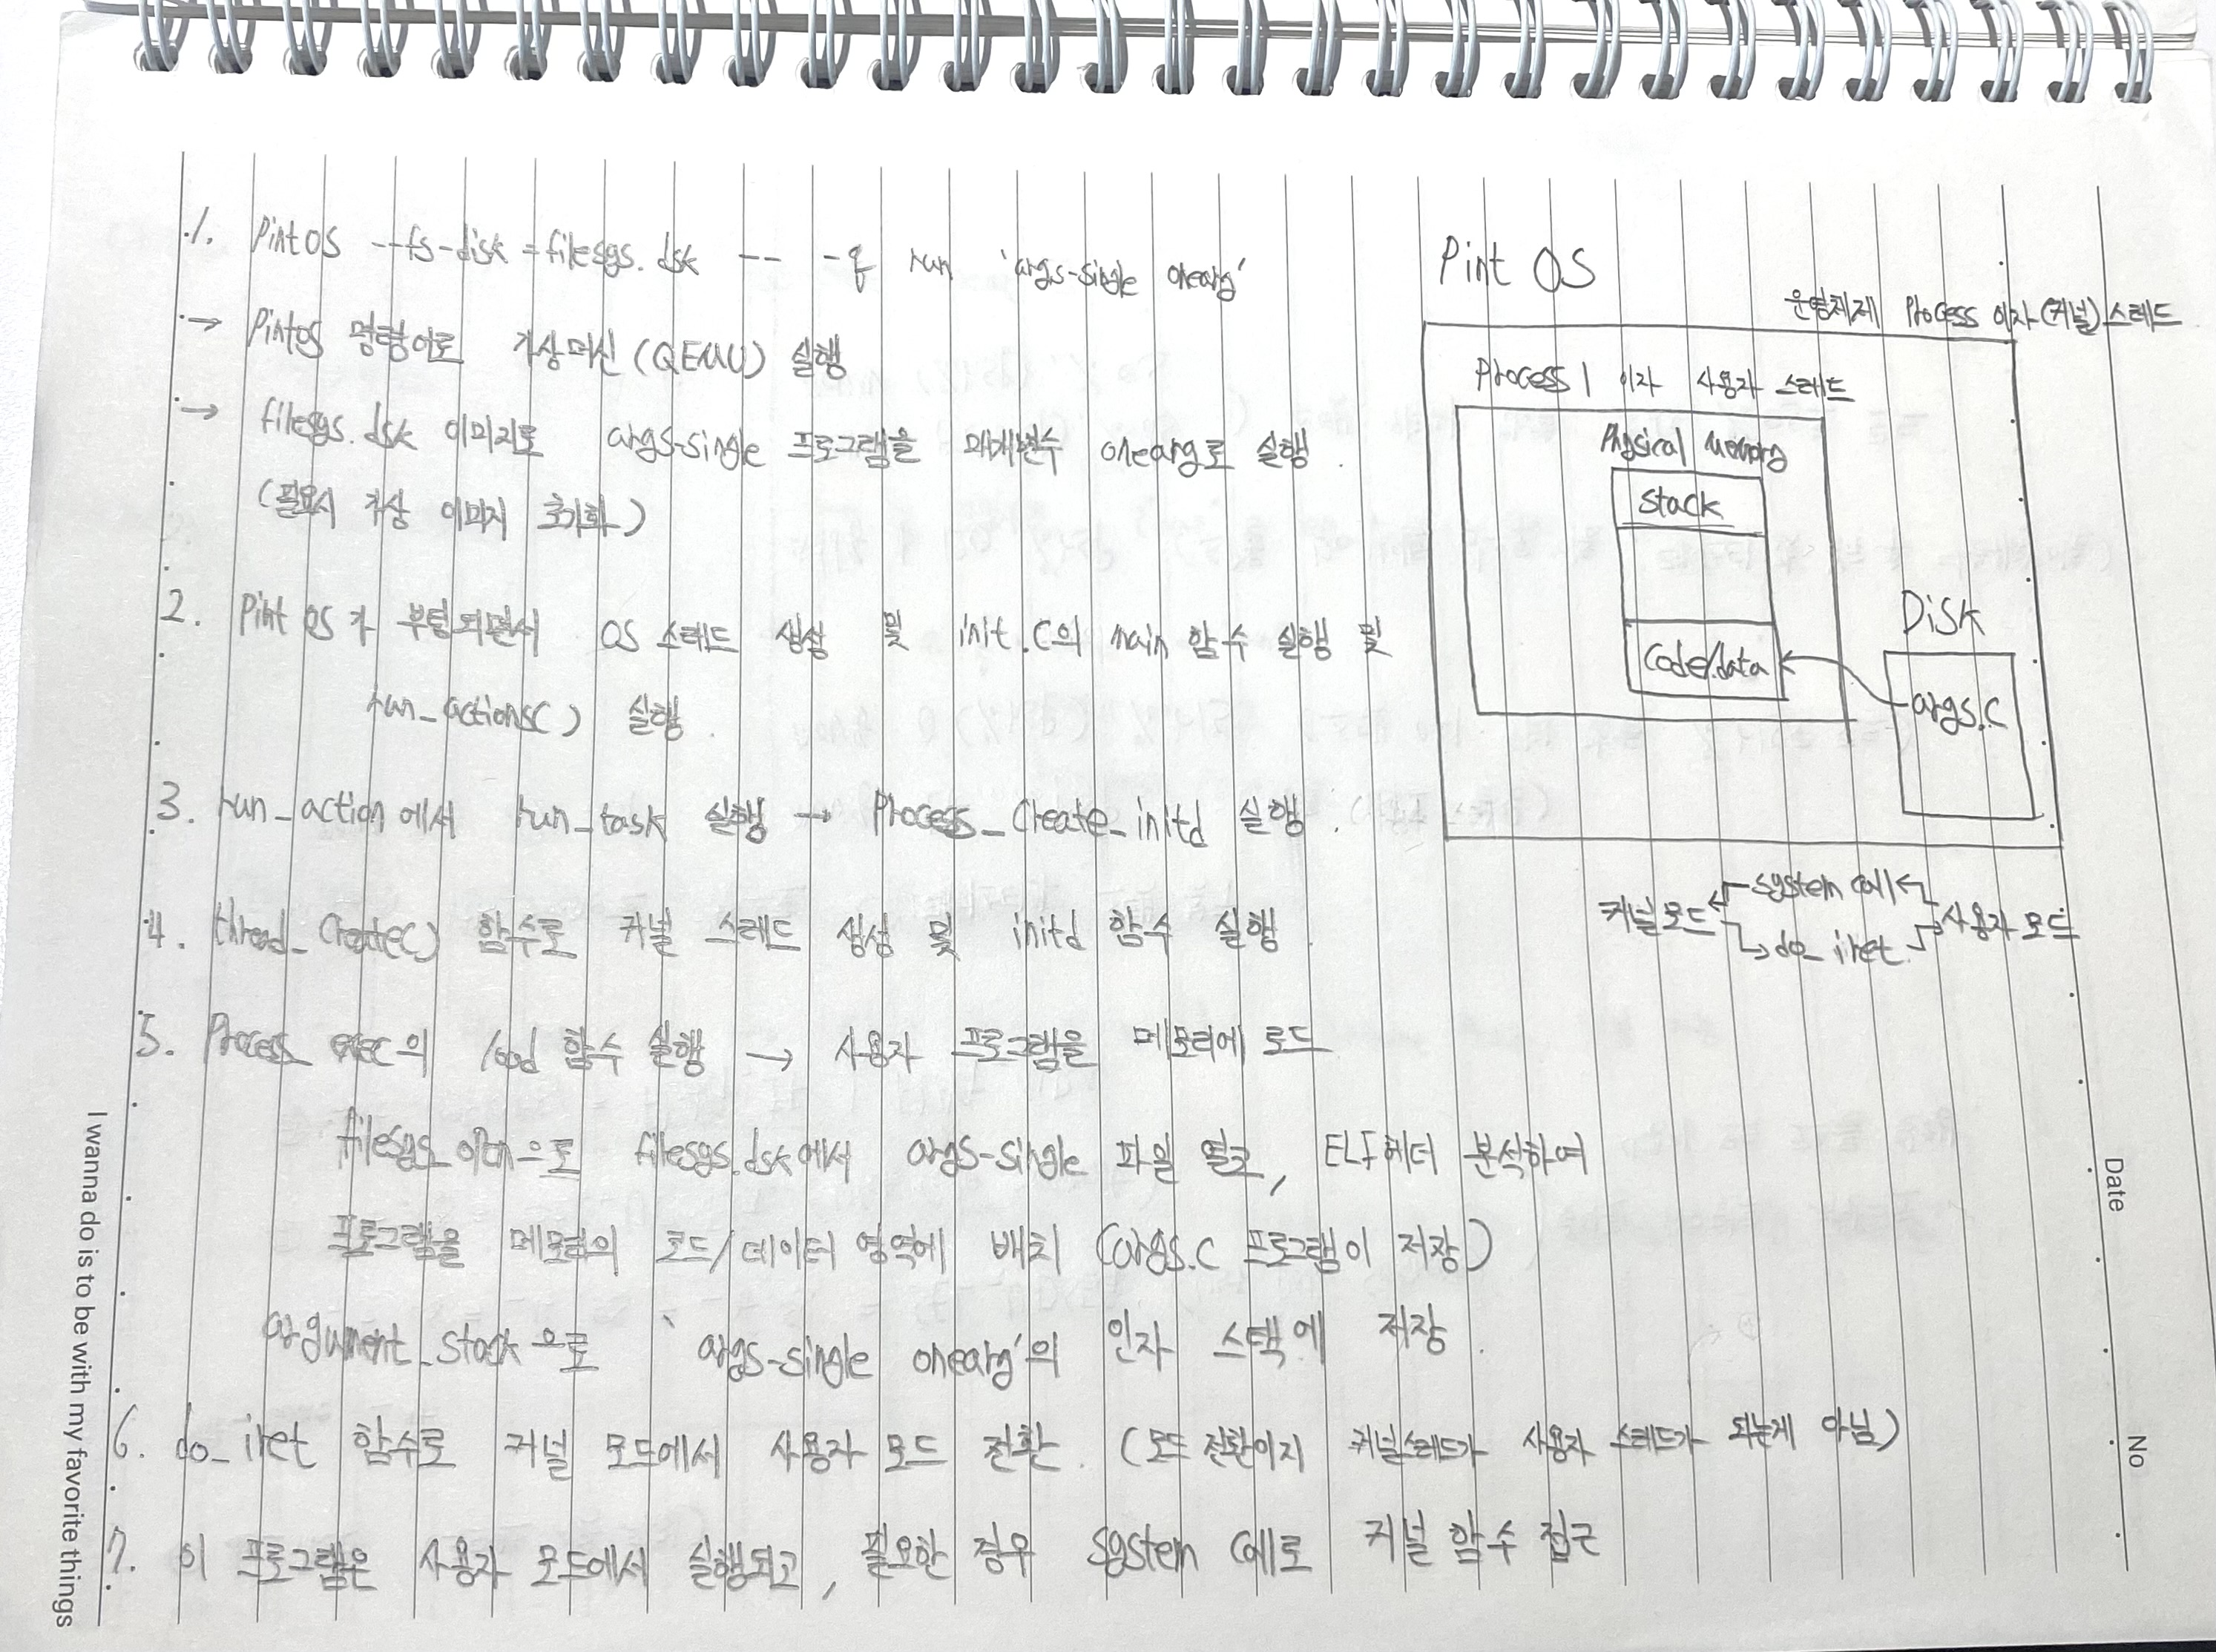 1. Pint OS --fs-disk=filesys.dsk -- -q run 'args-single onearg'
→ Pintos 명령어로 가상머신(QEMU) 실행
→ filesys.dsk 이미지로 args-single 프로그램을 매개변수 onearg로 실행.
(필요시 가상 이미지 초기화)
2. Pint OS가 부팅되면서 OS 스레드 생성 및 init.c의 main 함수 실행 및
run_actions() 실행.
3. run_action에서 run_task 실행 → Process_Create_initd 실행.
4. thread_create() 함수로 커널 스레드 생성 및 initd 함수 실행.
5. Process_exec의 load 함수 실행 → 사용자 프로그램을 메모리에 로드
filesys_open으로 filesys.dsk에서 args-single 파일 열고, ELF헤더 분석하여
프로그램을 메모리의 코드/데이터 영역에 배치 (args.c 프로그램이 저장)
argument_stack으로 'args-single onearg'의 인자 스택에 저장.
6. do_iret 함수로 커널 모드에서 사용자 모드 전환. (모드 전환이지 커널스레드가 사용자 스레드가 되는게 아님)
7. 이 프로그램은 사용자 모드에서 실행되고, 필요한 경우 System Call로 커널 함수 접근
Pint OS
운영체제 Process 이자 (커널) 스레드
Process 1 이자 사용자 스레드
Physical Memory
Stack
Code/data
Disk
args.c
커널 모드
system call
do_iret
사용자 모드
Date
No
I wanna do is to be with my favorite things